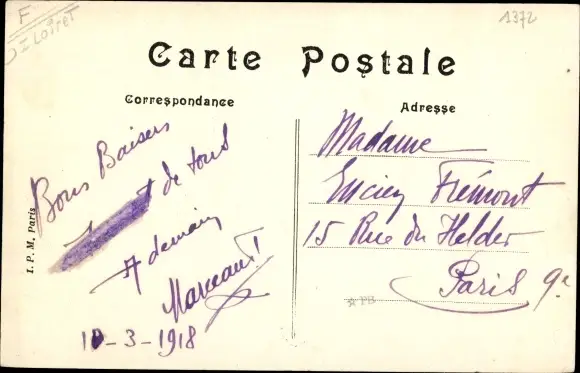 F
Loiret
1372
Carte Postale
Correspondance
Adresse
Bons Baisers
de tous
A demain
Marceau
10-3-1918
Madame
Lucien Frémont
15 Rue du Helder
Paris 9e
I. P. M. Paris
PB